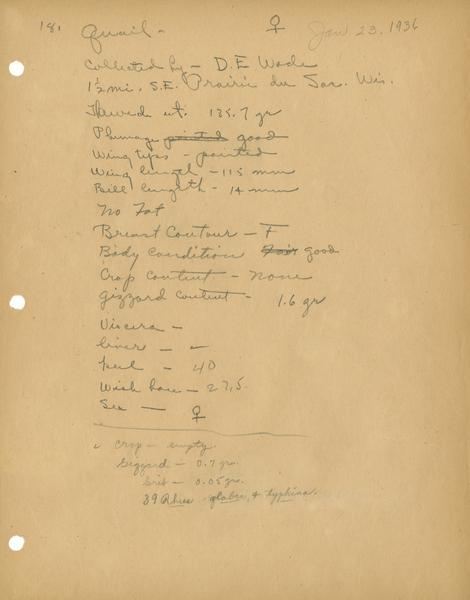 181 Quail - ♀ Jan 23, 1936
Collected by - D.E Wade
1½ mi. S.E. Prairie du Sac. Wis.
Thawed wt. 135.7 gr
Plumage pointed good
Wing tips - pointed
Wing length - 115 mm
Bill length - 14 mm
No Fat
Breast Contour - F
Body Condition Fair good
Crop content - None
Gizzard content - 1.6 gr
Viscera -
Liver - -
Keel - 40
Wish bone - 27.5
Sex - ♀
Crop - empty.
Gizzard - 0.7 gr.
Grit - 0.05 gr.
39 Rhus glabra, & typhina.